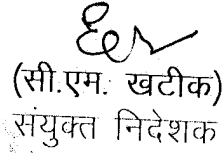 (सी.एम. खटीक)
संयुक्त निदेशक